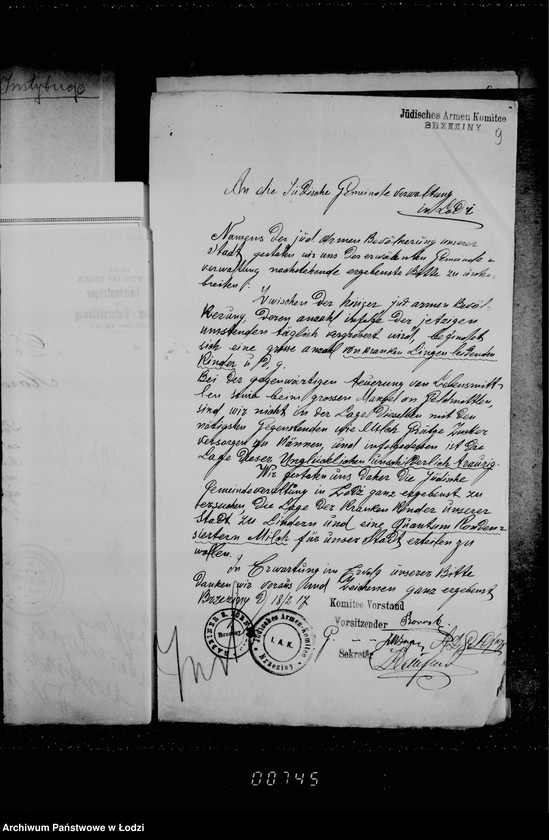 Instytucje
Jüdisches Armen Komitee
BRZEZINY
9
An die Jüdische Gemeinde Verwaltung
in Lodz
Namens der jüd. Armen Bevölkerung unserer
Stadt, gestatten wir uns der Gemeinde
verwaltung nachstehende ergebenste Bitte zu
breiten:
Zwischen der hieger jüd armen Bevöl-
kerung, deren anzahl infolge der jetzigen
umstenden täglich vergrösert wird, befindet
sich eine grose anzahl von kranken Lingenleidenden
Kinder u. d. g.
Bei der gegenwärtigen teuerung von Lebensmitt-
len sowie beim grossen Mangel an Geldmitteln,
sind wir nicht in der Lage Dieselben mit den
nötigsten Gegenstenden wie Milch Grütze Zucker
versorgen zu können, und infolgedessen ist die
Lage dieser Unglücklichen unschilderlich traurig.
Wir gestatten uns daher die Jüdische
Gemeindeverwaltung in Lodz ganz ergebenst zu
ersuchen die Lage der kranken Kinder unserer
Stadt, zu lindern und eine Quantum Konden-
siertern Milch für unser Stadt erteilen zu
wollen.
In Erwartung im Erfolg unserer Bitte
danken wir voraus und zeichnen ganz ergebenst
Brzeziny d) 18/2 17
Komitee Vorstand
Vorsitzender
Sekretär
Jüdisches Armen-Komitee
I. A. K.
Brzeziny
00745
Archiwum Państwowe w Łodzi